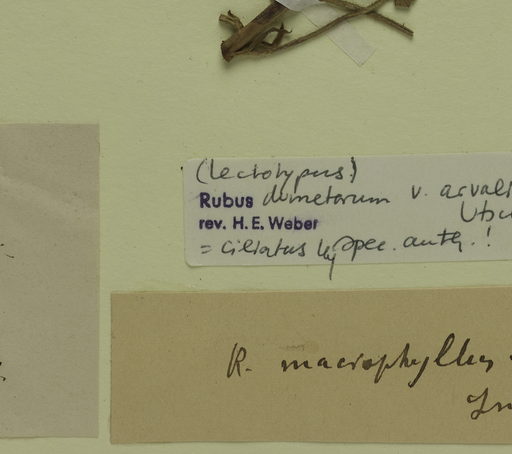 (lectotypus!)
Rubus dumetorum v. arvali
rev. H. E. Weber
= ciliatus auth.!
R. macrophyllus